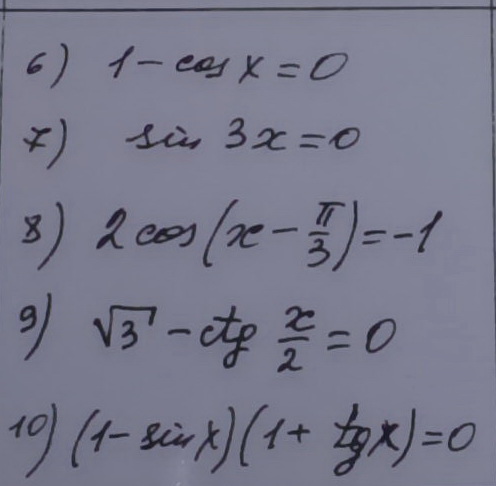 6) 1 - cos x = 0
7) sin 3x = 0
8) 2 cos(x - π/3) = -1
9) √3 - ctg x/2 = 0
10) (1 - sin x)(1 + tg x) = 0